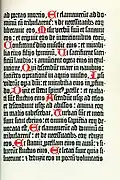 ad portas mortis. Et clamaverunt ad do-
minum cum tribularentur: et de necessitatibus eorum
liberavit eos. Misit verbum suum et sanavit
eos: et eripuit eos de interitionibus eorum.
Confiteantur domino misericordie eius: et mirabi-
lia eius filiis hominum. Et sacrificent sacri-
ficium laudis: et annuncient opera eius in exul-
tatione. Qui descendunt mare in navibus:
facientes operationem in aquis multis. Ipsi
viderunt opera domini: et mirabilia eius in profun-
do. Dixit et stetit spiritus procelle: et exalta-
ti sunt fluctus eius. Ascendunt usque ad celos
et descendunt usque ad abyssos: anima eorum
in malis tabescebat. Turbati sunt et moti
sunt sicut ebrius: et omnis sapientia eorum devo-
rata est. Et clamaverunt ad dominum cum
tribularentur: et de necessitatibus eorum eduxit
eos. Et statuit procellam eius in auram: et si-
luerunt fluctus eius. Et letati sunt quia si-
luerunt: et deduxit eos in portum voluntatis